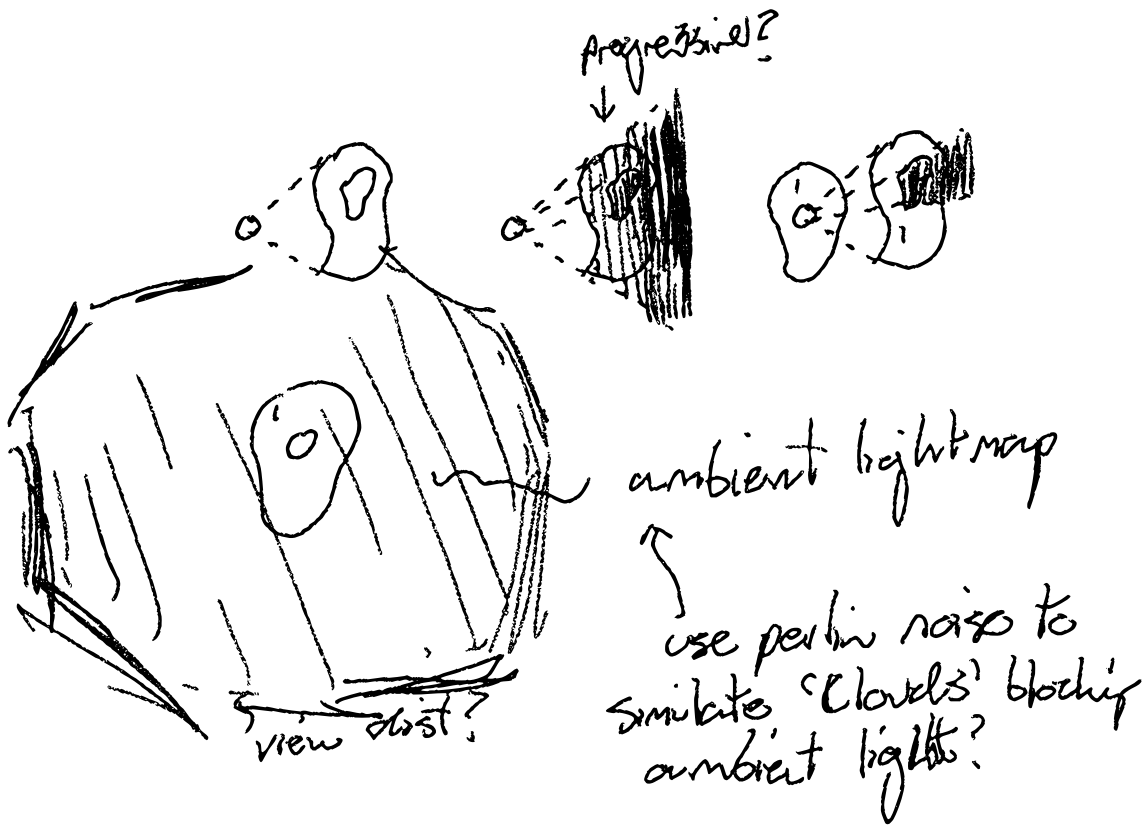 Progressive?
ambient lightmap
use perlin noise to
simulate 'Clouds' blocking
ambient light?
view dist?